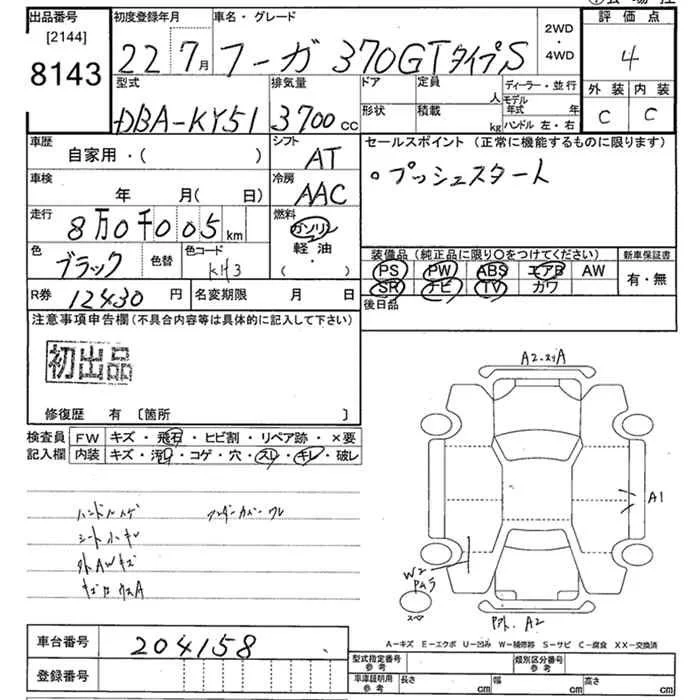 出品番号
[2144]
8143
初度登録年月
22 7月
車名・グレード
フーガ 370GTタイプS
2WD
・
4WD
評価点
4
外装 内装
C C
型式
DBA-KY51
排気量
3700cc
ドア
形状
定員
人
積載
kg
ディーラー・並行
モデル年式 年
ハンドル 左・右
車歴
自家用・( )
シフト
AT
セールスポイント (正常に機能するものに限ります)
。プッシュスタート
車検
年 月( 日)
冷房
AAC
走行
8万0千005km
燃料
ガソリン
軽油
・
( )
色
ブラック
色替
色コード
KH3
装備品 (純正品に限り○をつけてください)
PS PW ABS エアB AW
SR ナビ TV カワ
新車保証書
有・無
R券 12430円
名変期限 月 日
後日品
注意事項申告欄 (不具合内容等は具体的に記入して下さい)
初出品
修復歴 有 〔箇所 〕
検査員
記入欄
FW キズ・飛石・ヒビ割・リペア跡・×要
内装 キズ・汚れ・コゲ・穴・スレ・キレ・破レ
ハンドルハゲ アンダーカバーワレ
シート小キレ
外AWキズ
A2・スリA
A1
W2
PA5
A2
A-キズ E-エクボ U-凹み W-補修跡 S-サビ C-腐食 XX-交換済
車台番号
204158
登録番号
型式指定番号
参考
類別区分番号
参考
車庫証明用
参考
長さ cm 幅 cm 高さ cm